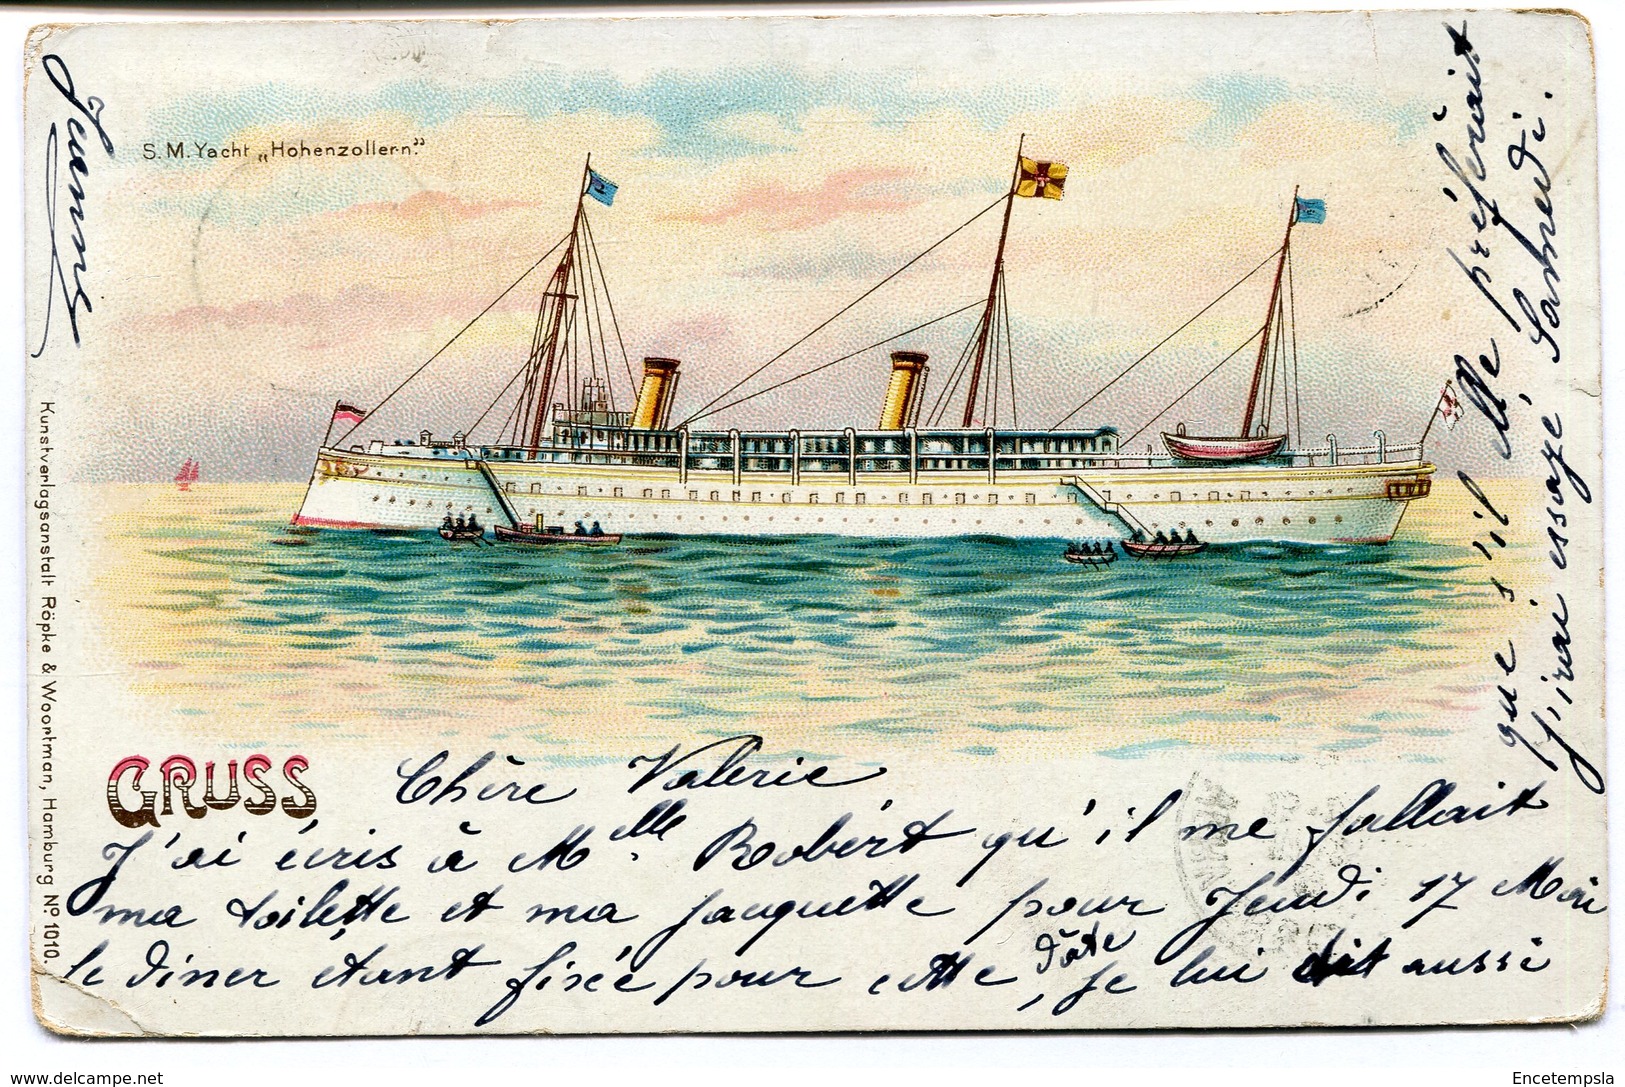 S.M. Yacht „Hohenzollern."
GRUSS
Chère Valerie
J'ai écris à Mlle Robért qu'il me fallait
ma toilette et ma jaquette pour Jeudi 17 Mai
le diner étant fixée pour cette date, je lui dit aussi
que s'il elle préférait
J'irai essayé Samedi.
Jeanne
Kunstverlagsanstalt Röpke & Woortman, Hamburg No. 1010.
delcampe.net
Encetempsla